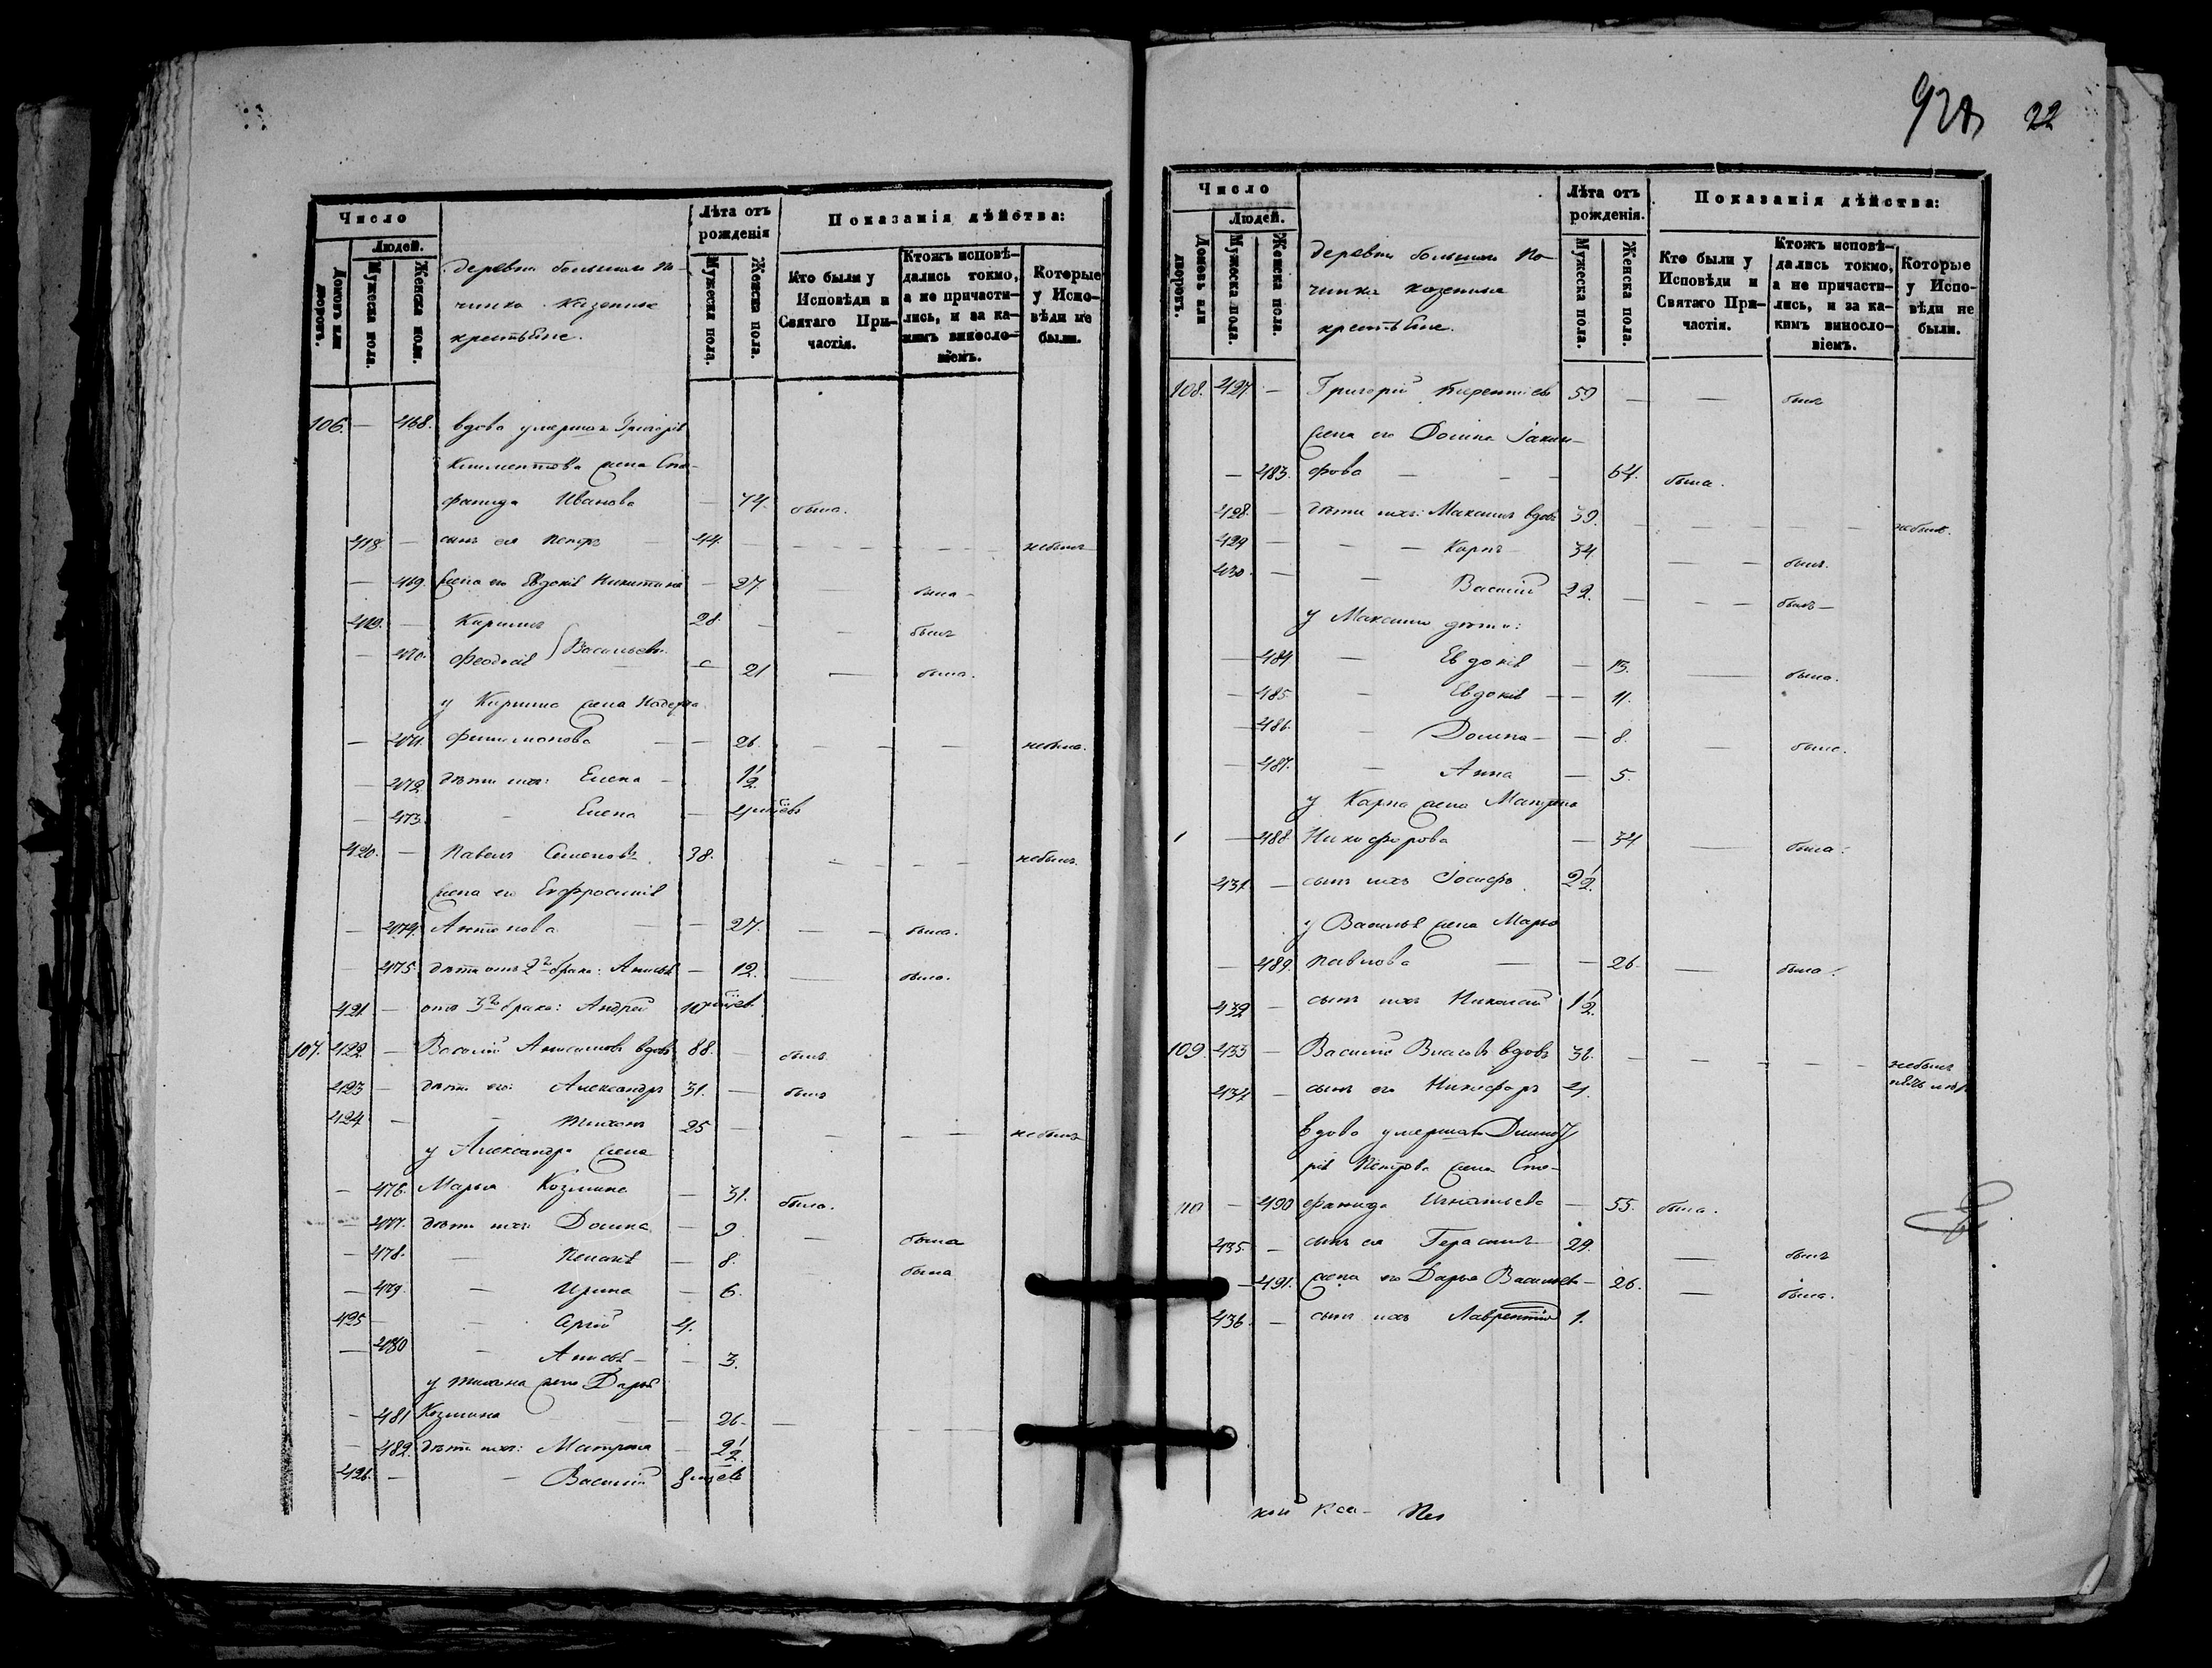 22
Число
Людей.
Домовъ или дворовъ.
Мужеска пола.
Женска пола.
деревни большаго По-
чинка казенные
крестьяне.
Лѣта отъ рожденія
Мужеска пола.
Женска пола.
Показанія дѣйства:
Кто были у Исповѣди и Святаго При-частія.
Ктожъ исповѣ-дались токмо, а не причасти-лись, и за ка-кимъ винословіемъ.
Которые у Испо-вѣди не были.
106. — 468. вдова умершаго Григорія
Климентова жена Сте-
фанида Иванова — 74. была.
418 — сынъ ея Петръ — 44. — небылъ
— 469. жена его Евдокія Никитина — 27. — была —
419. — Кирилъ 28. — былъ
— 470. Феодосія } Васильевы — 21 — была.
у Кирилла жена Надежда
— 471. Филимонова — 26. — небыла.
— 472 дѣти ихъ: Елена — 1 1/2
— 473. — Елена —
420. — Павелъ Семеновъ 38. — небылъ.
жена его Евфросинія
— 474. Антонова — 27. — была.
— 475. дѣти отъ 2го брака: Анисья — 12. — была.
421 — отъ 3го брака: Андрей 10
107. 422 — Василій Анисимовъ вдовъ 88. — былъ
423 — дѣти его: Александръ 31. — былъ
424 — Тихонъ 25 — небылъ
у Александра жена
— 476. Марья Козмина — 31. была.
— 477. дѣти ихъ: Домна — 9. — была
— 478. — Пелагія — 8. была
— 479. — Ирина — 6.
425 — Сергій 4.
— 480 — Анисья — 3.
у Тихона жена Дарья
— 481 Козмина — 26 —
— 482. дѣти ихъ: Матрона — 2 1/2
426. — Василій
Число
Людей.
Домовъ или дворовъ.
Мужеска пола.
Женска пола.
деревни большаго По-
чинка казенные
крестьяне.
Лѣта отъ рожденія.
Мужеска пола.
Женска пола.
Показанія дѣйства:
Кто были у Исповѣди и Святаго При-частія.
Ктожъ исповѣ-дались токмо, а не причасти-лись, и за ка-кимъ винословіемъ.
Которые у Испо-вѣди не были.
108. 427. — Григорій Терентіевъ 59 — былъ
жена его Домна
— 483. — 64. была.
428. — дѣти ихъ: Максимъ вдовъ 39. — небылъ.
429 — Карпъ 34. — былъ.
430. — Василій 22. — былъ —
у Максима дѣти:
— 484 — Евдокія — 15. — была.
— 485. — Евдокія — 11.
— 486. — Домна — 8. — была.
— 487. — Анна — 5.
у Карпа жена Матрона
— 488. Никифорова — 34 — была.
431 — сынъ ихъ Іосифъ 2 1/2.
у Василья жена Марья
— 489. Павлова — 26. — была.
432 — сынъ ихъ Николай 1 1/2.
109. 433 — Василій Власовъ вдовъ 36. — небылъ
434 — сынъ его Никифоръ 4.
Вдова умершаго Дими-
рія Петрова жена Сте-
110 — 490 фанида Игнатьева — 55. была.
435. — сынъ ея Герасимъ 29. — былъ
— 491. жена его Дарья Васильев — 26. — была.
436. — сынъ ихъ Лаврентій 1.